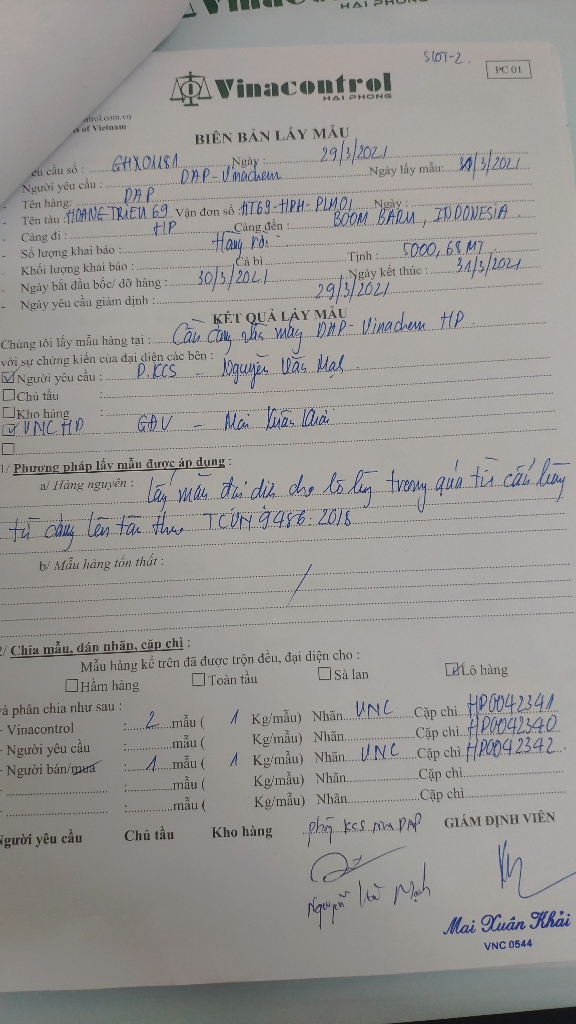 HAI PHONG
SLOT-2.
PC 01
Vinacontrol
HAI PHONG
trol.com.vn
of Vietnam
BIÊN BẢN LẤY MẪU
cầu số : GHX01181 Ngày : 29/3/2021
Người yêu cầu : DAP-Vinachem Ngày lấy mẫu: 31/3/2021
- Tên hàng: DAP
- Tên tàu : HOANG TRIEU 69 Vận đơn số HT69-HPH-PLM01 Ngày :
- Cảng đi : HP Cảng đến : BOOM BARU, INDONESIA
- Số lượng khai báo : Hàng rời
- Khối lượng khai báo : Cả bì Tịnh : 5000,68 MT
- Ngày bắt đầu bốc/ dỡ hàng : 30/3/2021 Ngày kết thúc : 31/3/2021
- Ngày yêu cầu giám định : 29/3/2021
KẾT QUẢ LẤY MẪU
Chúng tôi lấy mẫu hàng tại : Cầu cảng nhà máy DAP-Vinachem HP
với sự chứng kiến của đại diện các bên :
Người yêu cầu : P.KCS - Nguyễn Văn Mạnh
Chủ tầu :
Kho hàng :
VNC HP GĐV - Mai Xuân Khải
1/ Phương pháp lấy mẫu được áp dụng :
a/ Hàng nguyên : Lấy mẫu đại diện cho lô hàng trong quá từ cầu
từ cảng lên tàu theo TCVN 9486:2018
b/ Mẫu hàng tổn thất : /
2/ Chia mẫu, dán nhãn, cặp chì :
Mẫu hàng kể trên đã được trộn đều, đại diện cho :
Hầm hàng Toàn tầu Sà lan Lô hàng
và phân chia như sau :
- Vinacontrol : 2 mẫu ( 1 Kg/mẫu) Nhãn VNC Cặp chì HP0042341
- Người yêu cầu : mẫu ( Kg/mẫu) Nhãn Cặp chì HP0042340
- Người bán/mua : 1 mẫu ( 1 Kg/mẫu) Nhãn VNC Cặp chì HP0042342
- : mẫu ( Kg/mẫu) Nhãn Cặp chì
- : mẫu ( Kg/mẫu) Nhãn Cặp chì
Người yêu cầu Chủ tầu Kho hàng phòng KCS DAP GIÁM ĐỊNH VIÊN
Nguyễn Mạnh
Mai Xuân Khải
VNC 0544